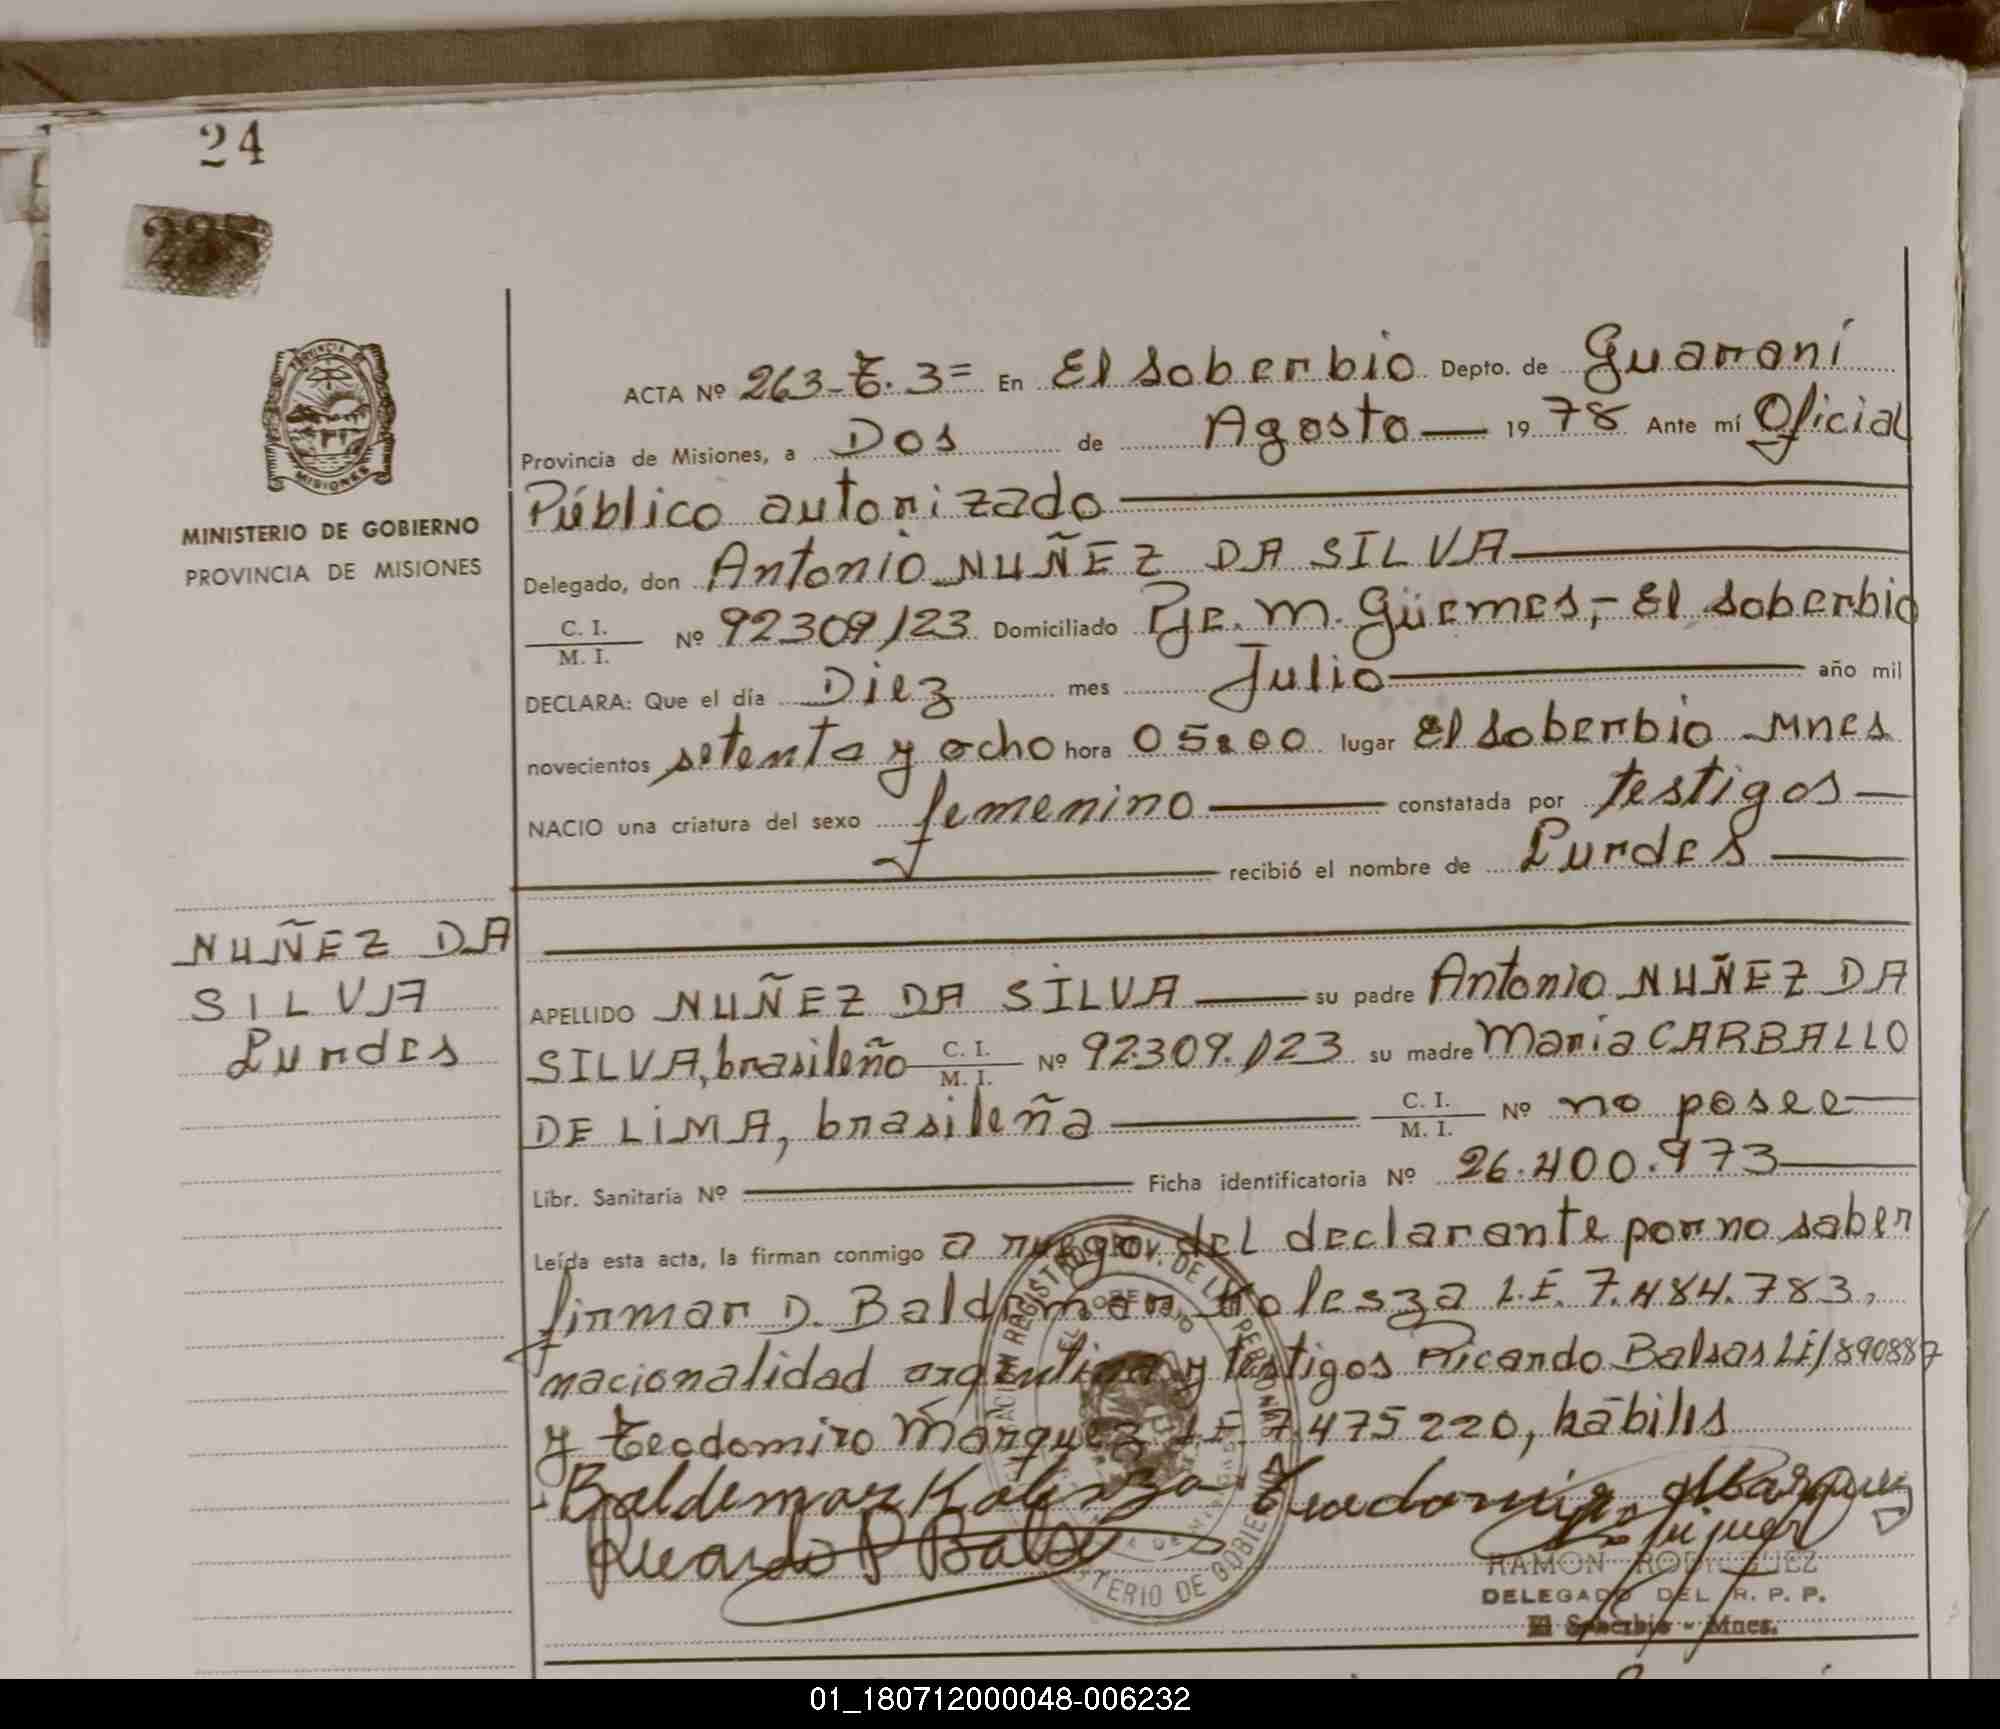 24
PROVINCIA DE
MISIONES
MINISTERIO DE GOBIERNO
PROVINCIA DE MISIONES
ACTA Nº 263-T. 3= En El Soberbio Depto. de Guaraní
Provincia de Misiones, a Dos de Agosto 19 78 Ante mí Oficial
Público autorizado
Delegado, don Antonio NUÑEZ DA SILVA
C. I. / M. I. Nº 92309/123 Domiciliado Pje. M. Güemes,- El Soberbio
DECLARA: Que el día Diez mes Julio año mil
novecientos setenta y ocho hora 05:00 lugar El Soberbio Mnes
NACIO una criatura del sexo femenino constatada por testigos
recibió el nombre de Lurdes
NUÑEZ DA
SILVA
Lurdes
APELLIDO NUÑEZ DA SILVA su padre Antonio NUÑEZ DA
SILVA, brasileño C. I. / M. I. Nº 92.309./123 su madre Maria CARBALLO
DE LIMA, brasileña C. I. / M. I. Nº no posee
Libr. Sanitaria Nº Ficha identificatoria Nº 26.400.973
Leída esta acta, la firman conmigo a ruego del declarante por no saber
firmar D. Baldemar Kolesza L.E. 7.484.783,
nacionalidad argentina y testigos Ricardo Balsas LE/890887
y Teodomiro Marquez L.E. 7.475220, hábiles
Baldemar Teodomiro Marquez
Ricardo
RAMON RODRIGUEZ
DELEGADO DEL R. P. P.
El Soberbio - Mnes.
01_180712000048-006232